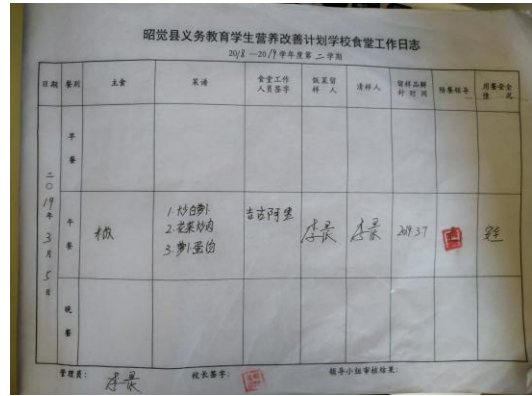 昭觉县义务教育学生营养改善计划学校食堂工作日志
2018—2019学年度第二学期
日期 餐别 主食 菜谱 食堂工作人员签字 饭菜留样人 清样人 留样品解封时间 陪餐领导 用餐安全情况
二〇19年3月5日
早餐
午餐 米饭 1.炒白萝卜 2.花菜炒肉 3.萝卜蛋汤 吉古阿里 李景 李景 2019.3.7
晚餐
管理员: 李景 校长签字: 领导小组审核结果: